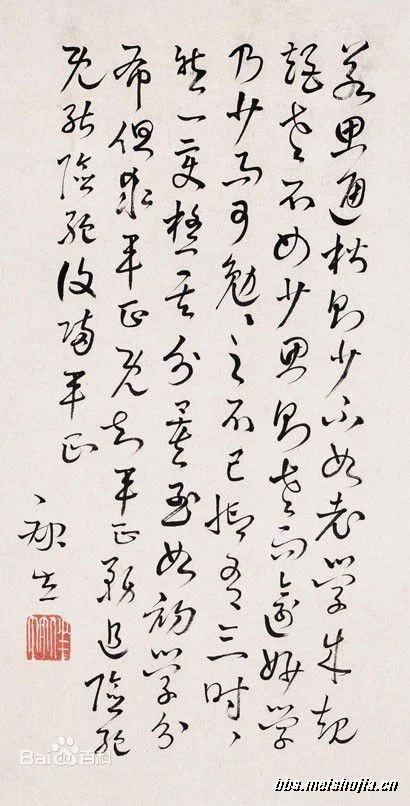 若思通楷則少不如老學成規
矩老不如少思則老而逾妙學
乃少而可勉〻之不已抑有三時〻
然一變極其分矣至如初學分
布但求平正既知平正務追險絕
既能險絕復歸平正
Bai百科
bbs.meishujia.cn